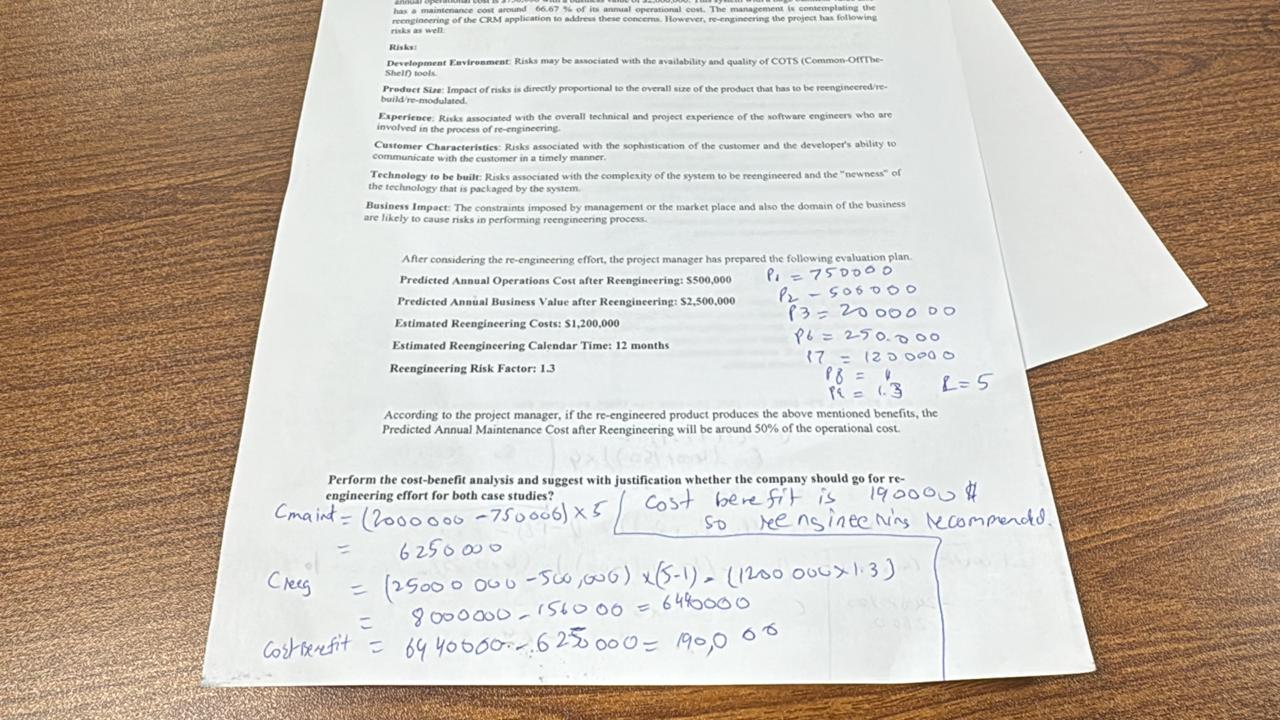 annual operational cost is $750,000 with a business value of $2,000,000. This system with a huge business value
has a maintenance cost around 66.67 % of its annual operational cost. The management is contemplating the
reengineering of the CRM application to address these concerns. However, re-engineering the project has following
risks as well:
Risks:
Development Environment: Risks may be associated with the availability and quality of COTS (Common-OffThe-
Shelf) tools.
Product Size: Impact of risks is directly proportional to the overall size of the product that has to be reengineered/re-
build/re-modulated.
Experience: Risks associated with the overall technical and project experience of the software engineers who are
involved in the process of re-engineering.
Customer Characteristics: Risks associated with the sophistication of the customer and the developer's ability to
communicate with the customer in a timely manner.
Technology to be built: Risks associated with the complexity of the system to be reengineered and the "newness" of
the technology that is packaged by the system.
Business Impact: The constraints imposed by management or the market place and also the domain of the business
are likely to cause risks in performing reengineering process.
After considering the re-engineering effort, the project manager has prepared the following evaluation plan.
Predicted Annual Operations Cost after Reengineering: $500,000
Predicted Annual Business Value after Reengineering: $2,500,000
Estimated Reengineering Costs: $1,200,000
Estimated Reengineering Calendar Time: 12 months
Reengineering Risk Factor: 1.3
P1 = 750000
P2 - 500000
P3 = 2000000
P6 = 250.000
P7 = 1200000
P8 = 1
P9 = 1.3 L = 5
According to the project manager, if the re-engineered product produces the above mentioned benefits, the
Predicted Annual Maintenance Cost after Reengineering will be around 50% of the operational cost.
Perform the cost-benefit analysis and suggest with justification whether the company should go for re-
engineering effort for both case studies?
Cmaint = (2000000 - 750000) x 5
= 6250000
Cost benefit is 190000 $
so reengineering recommended.
Creeg = (25000 000 - 500,000) x (5-1) - (1200 000 x 1.3)
= 8000000 - 156000 = 6440000
Cost Benefit = 6440000 - 6250000 = 190,000